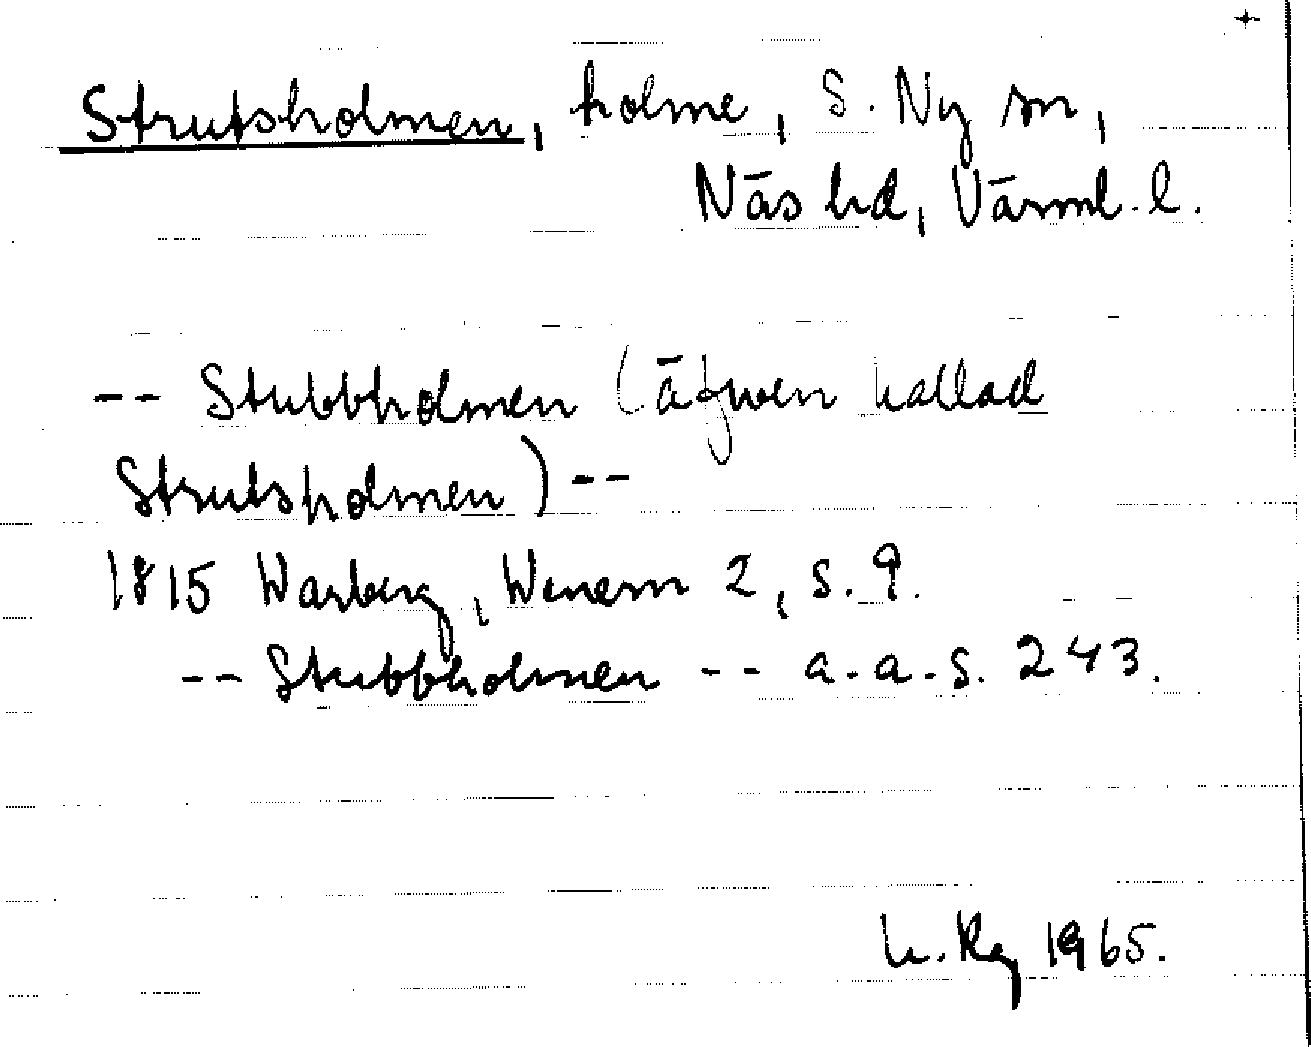 Strutsholmen, holme, S. Ny sn,
Näs hd, Värml. l.
-- Stubbholmen (äfwen kallad
Strutsholmen) --
1815 Warberg, Wenern 2, s. 9.
-- Stubbholmen -- a.a.s. 243.
1965.